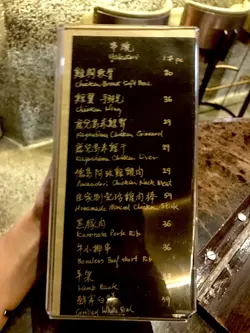 串燒
Yakitori
1 pc
雞胸軟骨
30
Chicken Breast Soft Bone
雞翼
36
Chicken Wing
鹿兒島赤雞腎
29
Kagoshima Chicken Gizzard
鹿兒島赤雞干
29
Kagoshima Chicken Liver
29
Chicken Neck Meat
自家製
59
Homemade Minced Chicken Stick
黑豚肉
36
Kurobuta Pork Rib
牛小排串
36
Boneless Beef Short Rib
羊架
59
Lamb Rack